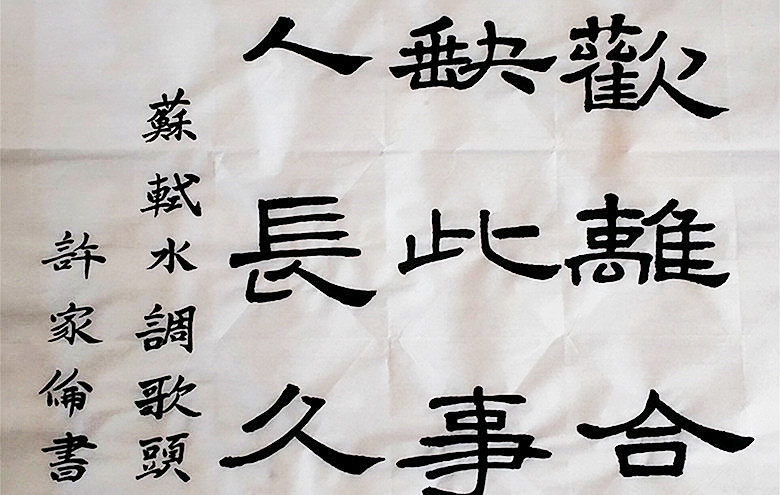 歡離合
缺此事
人長久
蘇軾水調歌頭
許家倫書